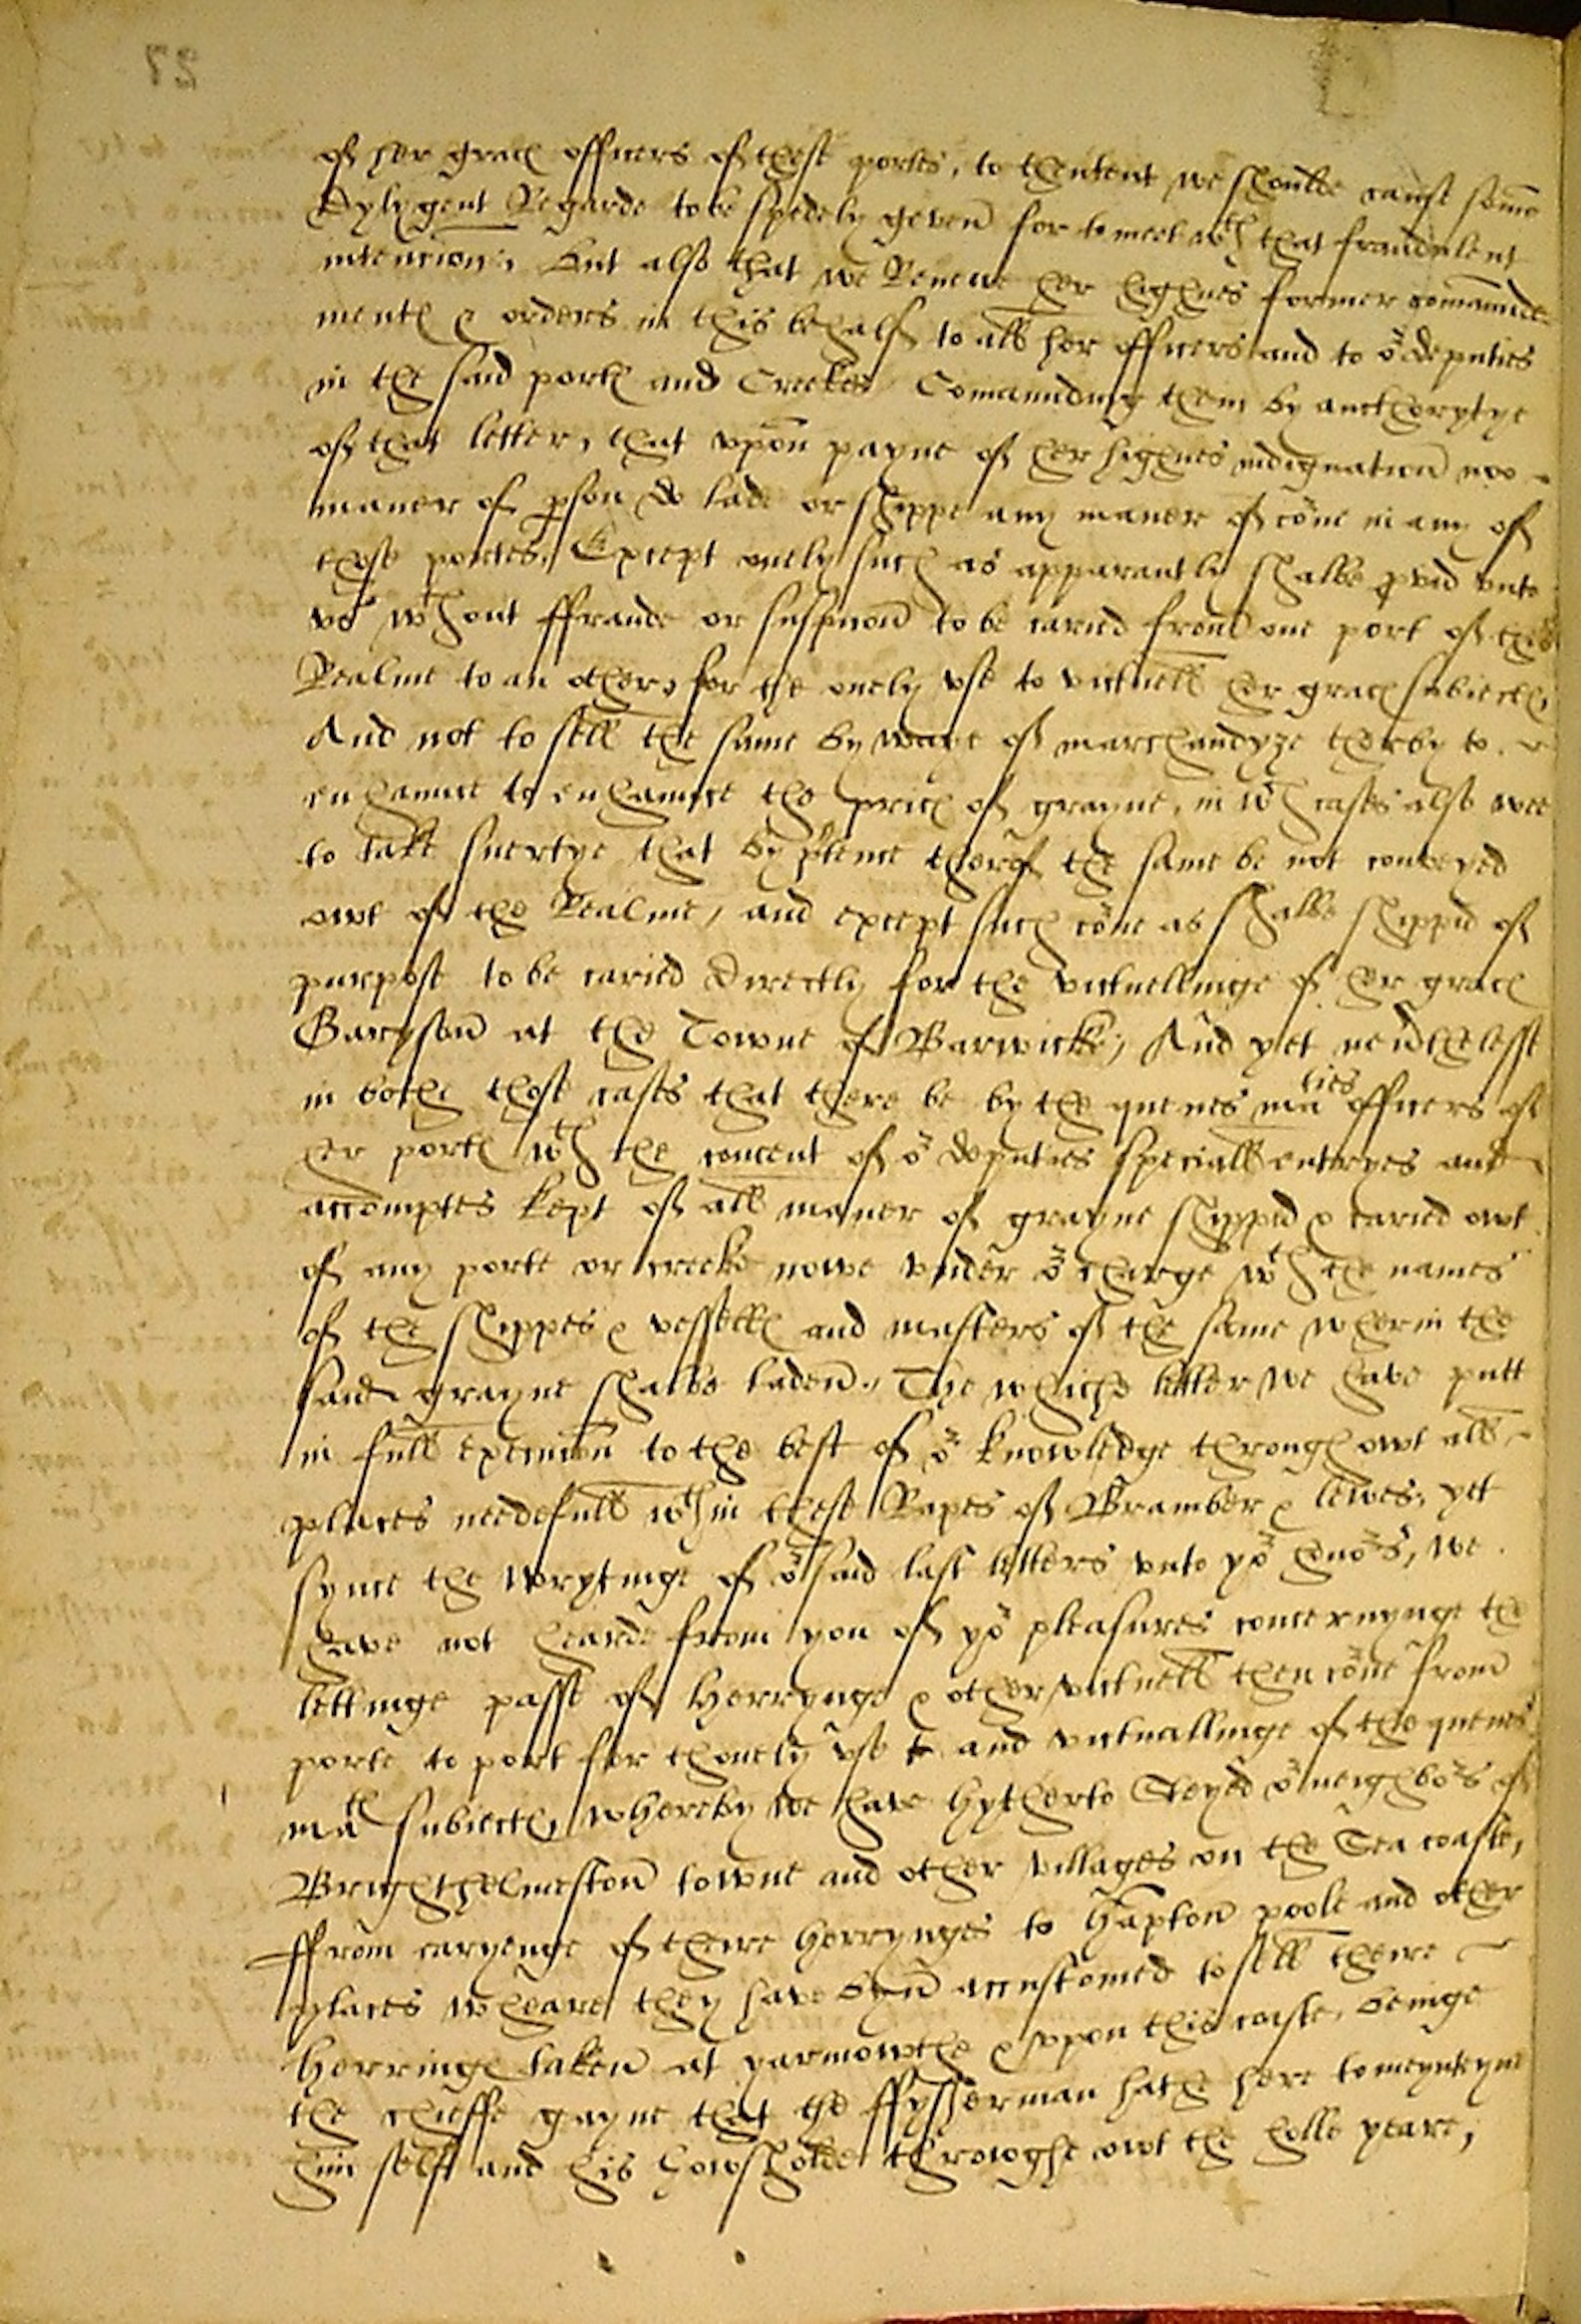 of her graces officers of these portes, to thentent we shoulde cause some
Dylygent Regarde to be spedely geven for to meet wth that fraudulent
intencion, but also that we Renewe her highnes former comaunde-
mentes & orders in this behalf to all her officers and to or deputies
in the said portes and Creekes Comaundinge them by aucthorytye
of that letter, that vpon payne of her highnes indignation noo
maner of pson do lade or shippe any maner of corne in any of
those portes, Except onely such as apparantly shalbe pvid vnto
vs wthout ffraude or suspicion to be caried from one port of this
Realme to an other, for the onely vse to victuell her graces subiectes,
And not to sell the same by waye of marchandyze therby to
enhaunce to enhaunce the prices of grayne, in wch cases also wee
to take suertye that by ptence therof the same be not conveyed
owt of the Realme, and except such corne as shalbe shippid of
purpose to be caried directly for the victuellinge of her graces
Garyson at the Towne of Barwicke, And yet nevrthelesse
in bothe those cases that there be by the quenes maties officers of
her portes wth the concent of or deputies speciall entryes and
accomptes kept of all maner of grayne shippid & caried owt
of any porte or creeke nowe vnder or charge wth the names
of the shippes & vesselles and masters of the same wherin the
said grayne shalbe laden. The whiche letter we have putt
in full execucion to the best of or knowledge through owt all
places needefull wthin these Rapes of Bramber & lewes, yet
synce the wrytinge of or said last letters vnto yor honors, we
have not hearde from you of yor pleasures concernynge the
lettinge passe of Herrynge & other victuell then corne from
porte to port for thonely vse & and victuallinge of the quenes
mates subiectes, whereby we have hytherto Steyed or neighbors of
Brighthelmeston towne and other villages on the Sea coaste,
ffrom caryenge of theire Herrynges to Hampton poole and other
places wheare they have byn accustomed to sell theire
Herringes taken at yarmowthe & vpon this coaste, beinge
the chieffe gayne that the ffysherman hathe here to meynteyne
him self and his howsholde throwghe owt the holle yeare,